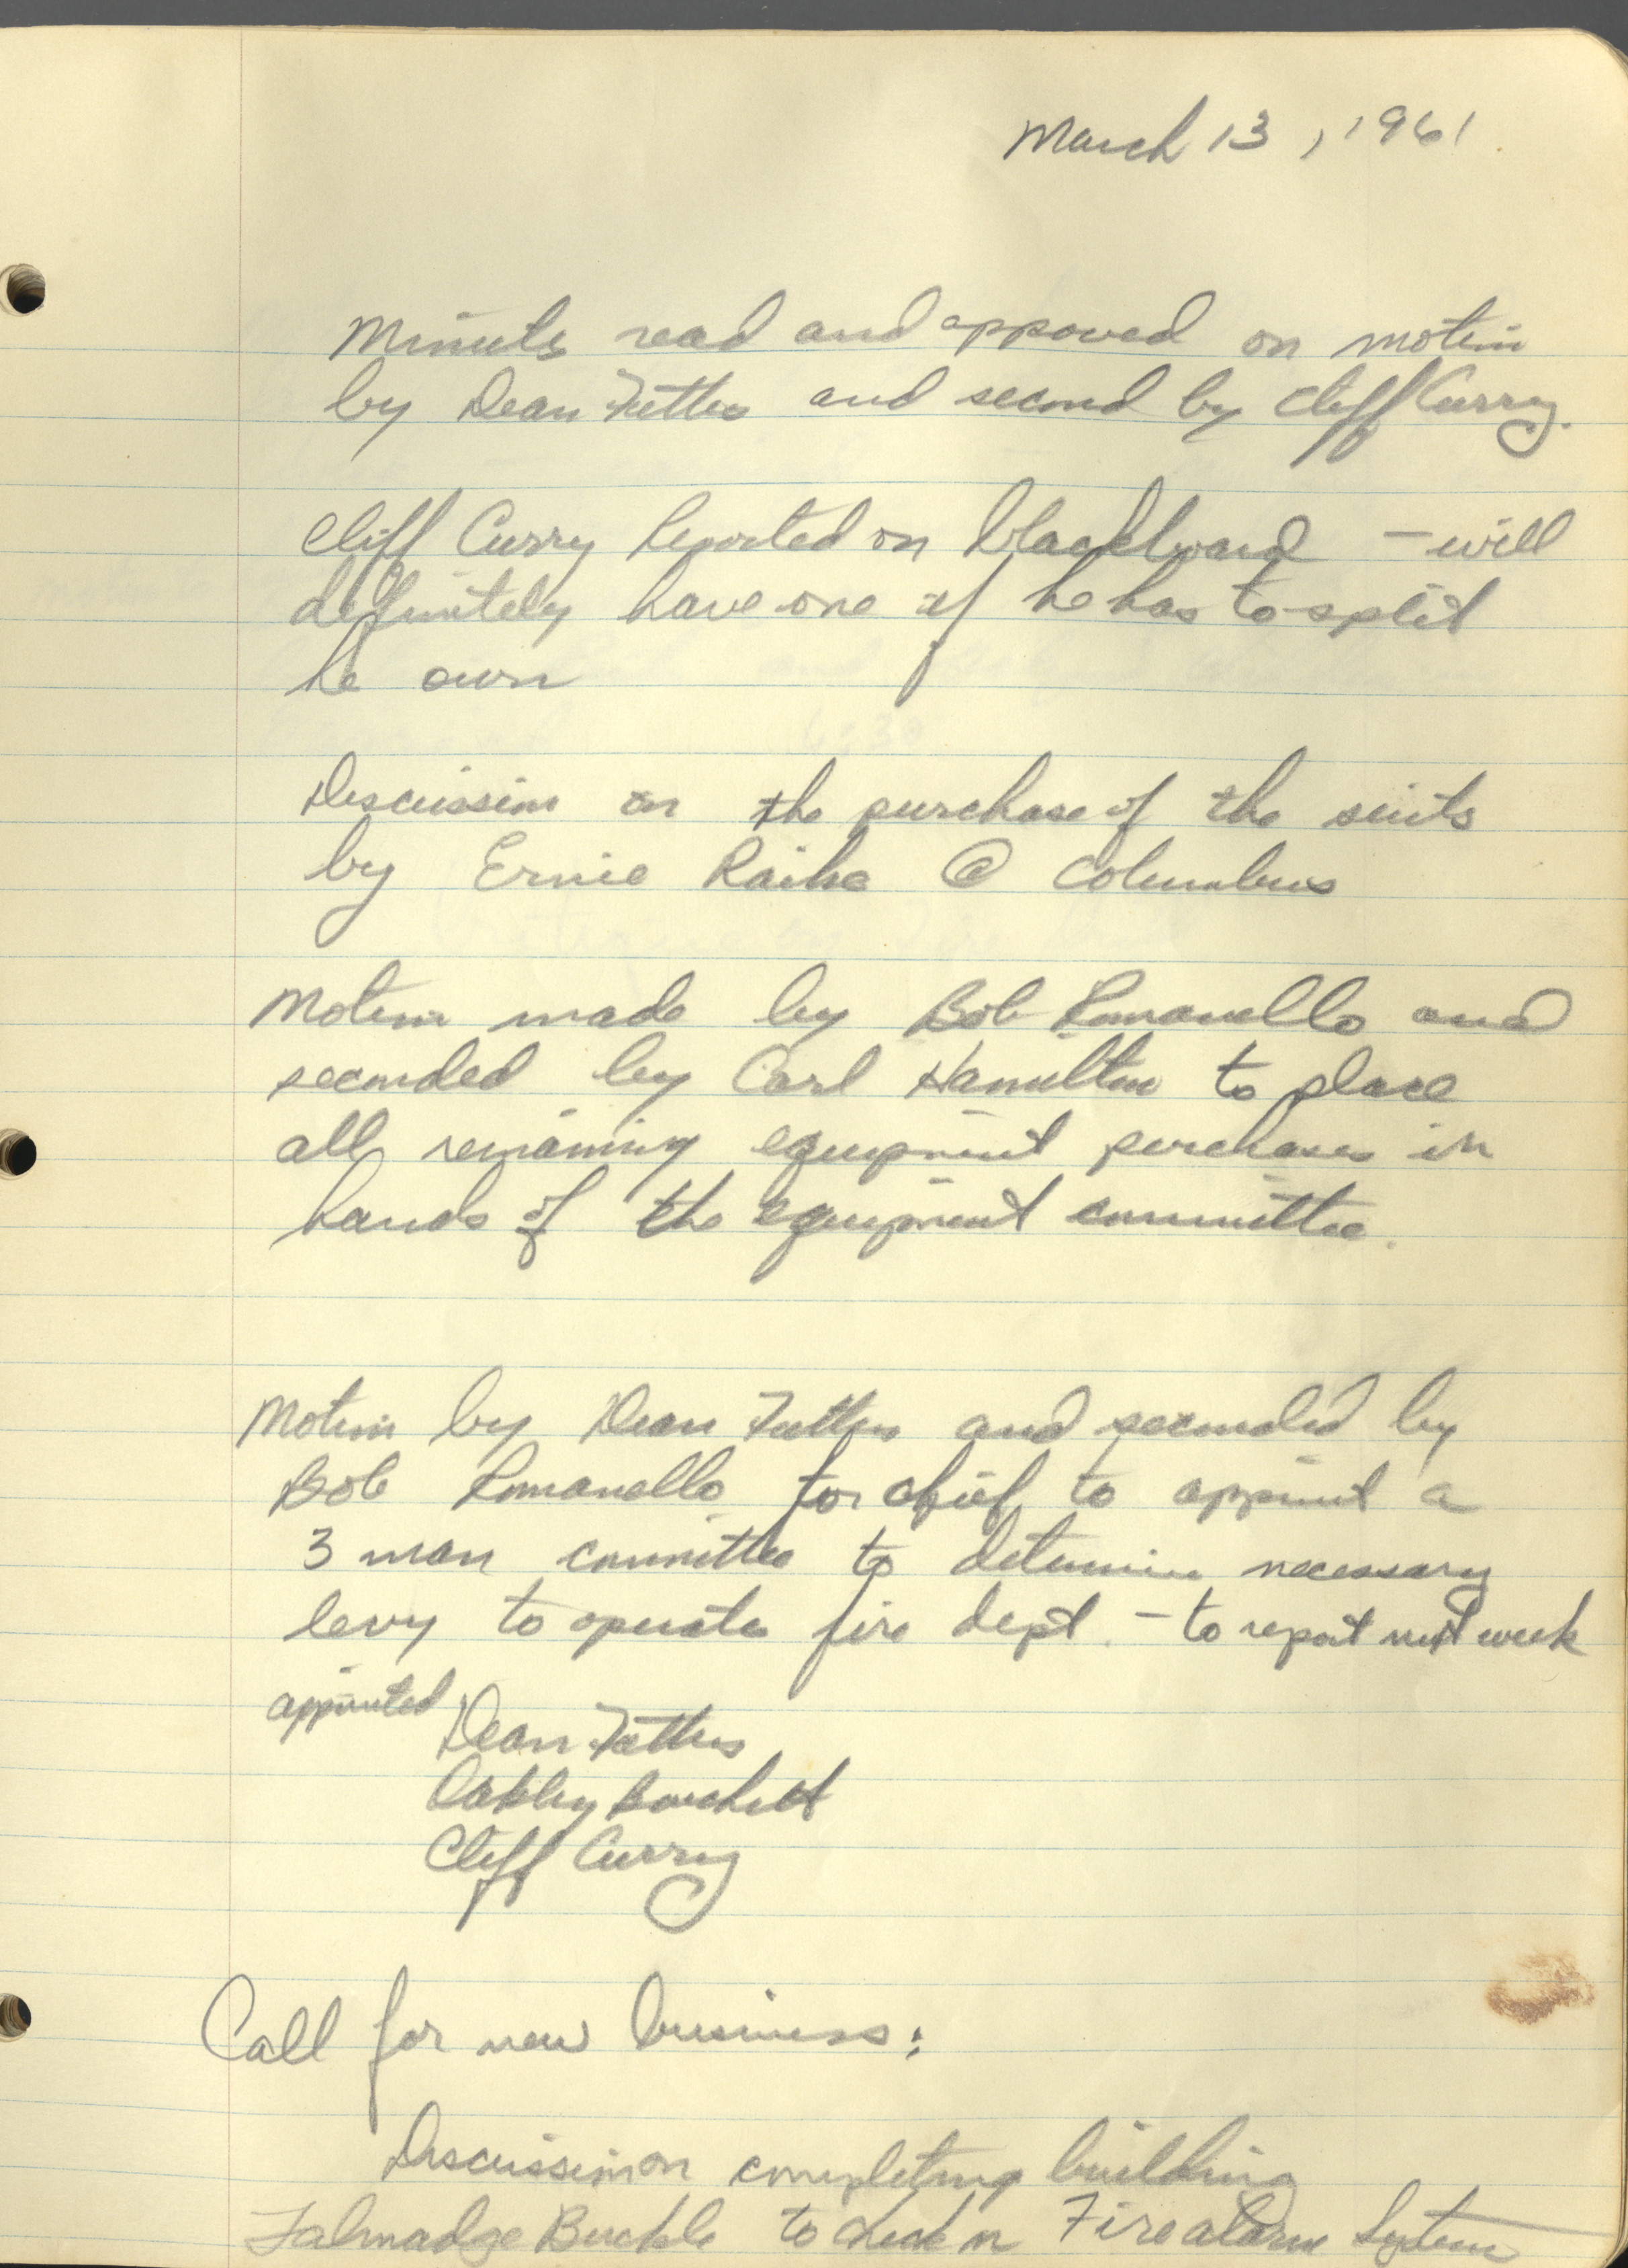 March 13, 1961
Minutes read and appoved on motion
by Dean Fetters and second by Cliff Curry.
Cliff Curry Reported on blackboard - will
definitely have one if he has to split
he own
Discussion on the purchase of the suits
by Ernie Raike @ Columbus
Motion made by Bob Romanello and
seconded by Carl Hamilton to place
all remaining equipment purchases in
hands of the equipment committee.
Motion by Dean Fetters and seconded by
Bob Romanello for chief to appoint a
3 man committee to determine necessary
levy to operate fire dept. - to report next week
appointed Dean Fetters
Oakley
Cliff Curry
Call for new business:
Discussion on completing building
Talmadge Buckle to check on Fire alarm System